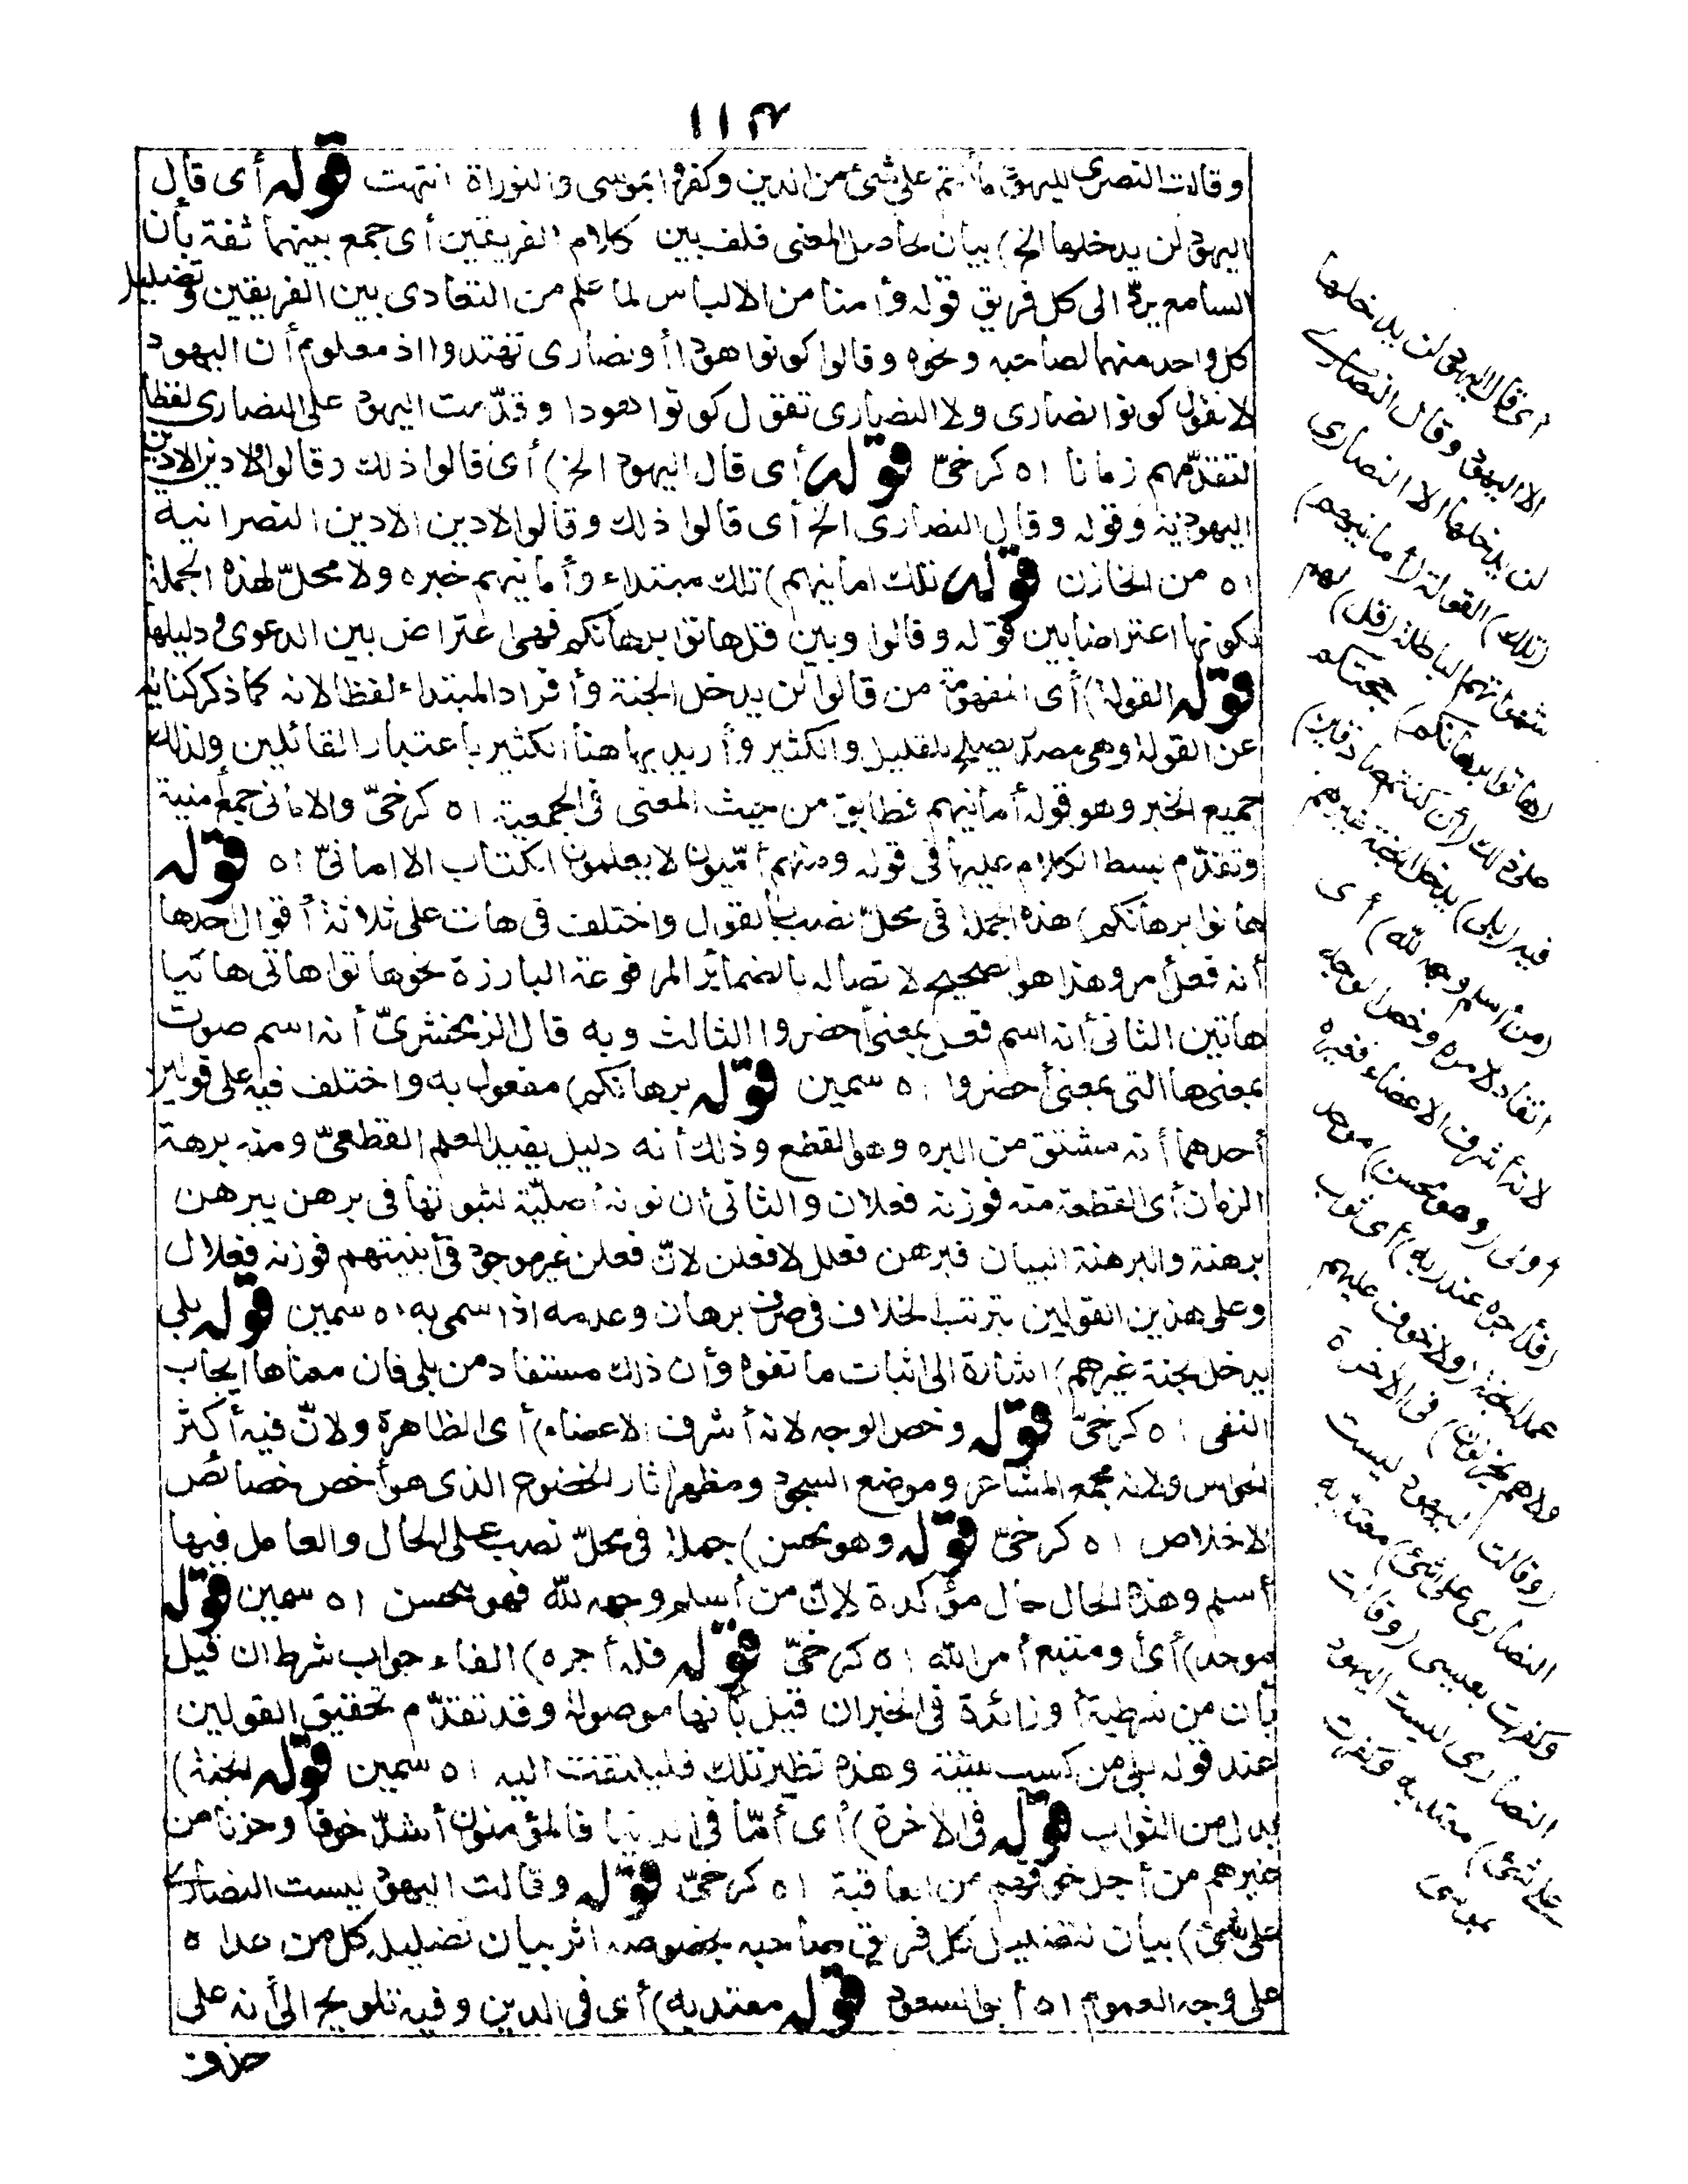 ١١٣
وقالت النصرى لليهود ما أنتم على شئ من الدين وكفروا بموسى والتوراة انتهت قوله أى قال
اليهود لن يدخلها الخ) بيان لحاصل المعنى فلف بين كلام الفريقين أى جمع بينهما ثقة بأن
السامع يردّ الى كل فريق قوله وأمنا من الالباس لما علم من التعادى بين الفريقين وتضليل
كل واحد منهما لصاحبه ونحوه وقالوا كونوا هودا أو نصارى تهتدوا اذ معلوم أن اليهود
لا تقول كونوا نصارى ولا النصارى تقول كونوا هودا وقدّمت اليهود على النصارى لفظا
لتقدّمهم زمانا اه كرخىّ قوله أى قال اليهود الخ) أى قالوا ذلك وقالوا لا دين الا دين
اليهودية وقوله وقال النصارى الخ أى قالوا ذلك وقالوا لا دين الا دين النصرانية
اه من الخازن قوله تلك امانيهم) تلك مبتداء وأمانيهم خبره ولا محلّ لهذه الجملة
لكونها اعتراضا بين قوله وقالوا وبين قل هاتوا برهانكم فهى اعتراض بين الدعوى ودليلها
قوله القولة) أى المفهومة من قالوا لن يدخل الجنة وأفراد المبتداء لفظا لانه كما ذكر كناية
عن القولة وهى مصدر يصلح للقليل والكثير وأريد بها هنا الكثير باعتبار القائلين ولذلك
جميع الخبر وهو قوله أمانيهم فطابق من حيث المعنى فى الجمعية اه كرخىّ والامانى جمع أمنية
وتقدّم بسط الكلام عليها فى قوله ومنهم أمّيون لا يعلمون الكتاب الا امانىّ اه قوله
هاتوا برهانكم) هذه الجملة فى محلّ نصب بالقول واختلف فى هات على ثلاثة أقوال احدها
أنه فعل أمر وهذا هو الصحيح لاتصاله بالضمائر المرفوعة البارزة نحو هاتوا هاتى هاتيا
هاتين الثانى أنه اسم فعل بمعنى أحضروا الثالث وبه قال الزمخشرىّ أنه اسم صوت
بمعنى ها التى بمعنى أحضروا اه سمين قوله برهانكم) مفعول به واختلف فيه على قولين
أحدهما أنه مشتق من البره وهو القطع وذلك أنه دليل يفيد العلم القطعىّ ومنه برهة
الزمان أى القطعة منه فوزنه فعلان والثانى أن نونه أصليّة لثبوتها فى برهن يبرهن
برهنة والبرهنة البيان فبرهن فعلل لا فعلن لانّ فعلن غير موجود فى أبنيتهم فوزنه فعلال
وعلى هذين القولين يترتب الخلاف فى صرف برهان وعدمه اذا سمى به اه سمين قوله بلى
يدخل الجنة غيرهم) اشارة الى اثبات ما نفوه وأن ذلك مستفاد من بلى فان معناها ايجاب
النفى اه كرخىّ قوله وخص الوجه لانه أشرف الاعضاء) أى الظاهرة ولانّ فيه أكثر
الحواس ولانه مجمع المشاعر وموضع السجود ومظهر آثار الخضوع الذى هو أخص خصائص
الاخلاص اه كرخىّ قوله وهو محسن) جملة فى محلّ نصب على الحال والعامل فيها
أسلم وهذه الحال حال مؤكدة لانّ من أسلم وجهه لله فهو محسن اه سمين قوله
موحد) أى أو متبع أمر الله اه كرخىّ قوله فله أجره) الفاء جواب شرط ان قيل
بأن من شرطية أو زائدة فى الخبر ان قيل بأنها موصولة وقد تقدّم تحقيق القولين
عند قوله بلى من كسب سيئة وهذه نظير تلك فليلتفت اليه اه سمين قوله الجنة)
بدل من الثواب قوله فى الآخرة) أى أمّا فى الدنيا فالمؤمنون أشدّ خوفا وحزنا من
غيرهم من أجل خوفهم من العاقبة اه كرخىّ قوله وقالت اليهود ليست النصارى
على شئ) بيان لتضليل كل فريق صاحبه بخصوصه اثر بيان تضليله كل من عداه
على وجه العموم اه أبو السعود قوله معتد به) أى فى الدين وفيه تلويح الى أنه على
حذف
أى قال اليهود لن يدخلها
الا اليهود وقال النصارى
لن يدخلها الا النصارى
(تلك) القولة (أمانيهم)
شهواتهم الباطلة (قل) لهم
(هاتوا برهانكم) حجتكم
على ذلك (ان كنتم صادقين)
فيه (بلى) يدخل الجنة غيرهم
(من أسلم وجهه لله) أى
انقاد لامره وخص الوجه
لانه أشرف الاعضاء فغيره
أولى (وهو محسن) موحد
(فله أجره عند ربه) أى ثواب
عمله الجنة (ولا خوف عليهم
ولا هم يحزنون) فى الآخرة
(وقالت اليهود ليست
النصارى على شئ) معتد به
وكفرت بعيسى (وقالت
النصارى ليست اليهود
على شئ) معتد به وكفرت
بموسى